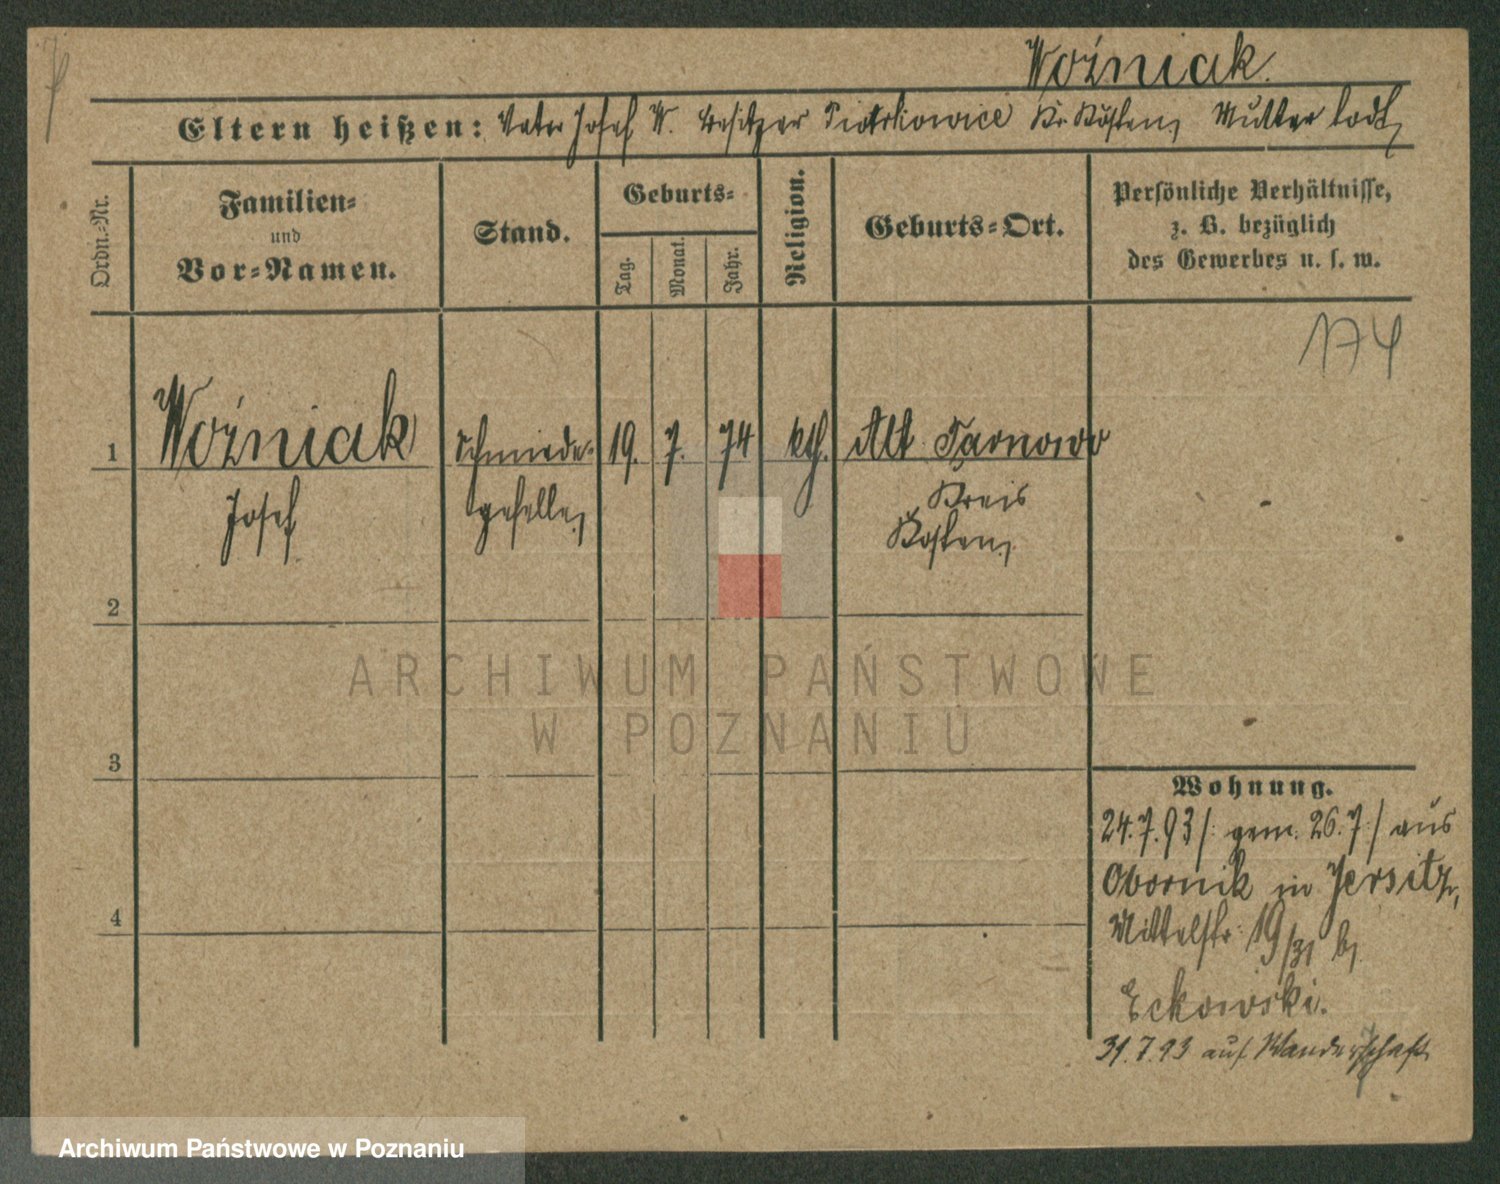 Woźniak.
Eltern heißen: Vater Josef W. Besitzer Piotrkowice Kr. Kosten, Mutter todt,
Ordn.-Nr.
Familien-
und
Vor-Namen.
Stand.
Geburts-
Tag.
Monat.
Jahr.
Religion.
Geburts-Ort.
Persönliche Verhältnisse,
z. B. bezüglich
des Gewerbes u. s. w.
174
1 Woźniak Schmiede- 19. 7. 74 kth. Alt Tarnowo
Josef geselle, Kreis
Kosten,
2
3
4
Wohnung.
24.7.93/: gem. 26.7:/ aus
Obornik in Jersitz,
Mittelstr. 19/31 b/
Eckowski.
31.7.93 auf Wanderschaft
ARCHIWUM PAŃSTWOWE
W POZNANIU
Archiwum Państwowe w Poznaniu